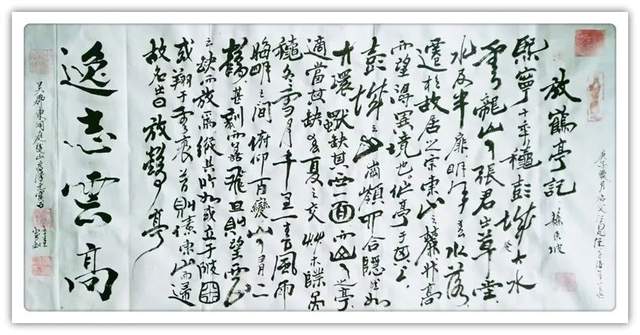 放鶴亭記 蘇東坡
熙寧十年秋彭城大水
雲龍山人張君之草堂
水及半扉明年春水落
遷於故居之東東山之麓升高
而望得異境也作亭于其上
彭城之山岡嶺四合隱然如
大環獨缺其西一面而山人之亭
適當其缺春夏之交草木際天
秋冬雪月千里一色風雨
晦明之間俯仰百變山人有二
鶴甚馴而善飛旦則望西山
之缺而放焉縱其所如或立于陂田
或翔于雲表暮則傃東山而歸
故名曰放鶴亭
逸志雲高